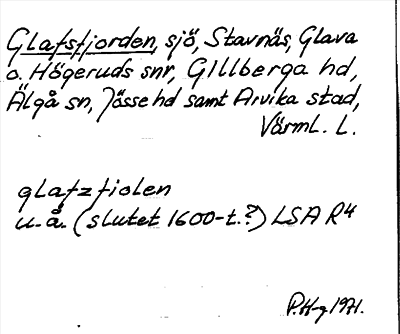 Glafsfjorden, sjö, Stavnäs, Glava
o. Högeruds snr, Gillberga hd,
Älgå sn, Jösse hd samt Arvika stad,
Värml. L.
glafzfiolen
u.å. (slutet 1600-t.?) LSA R4
P.H-g 1971.